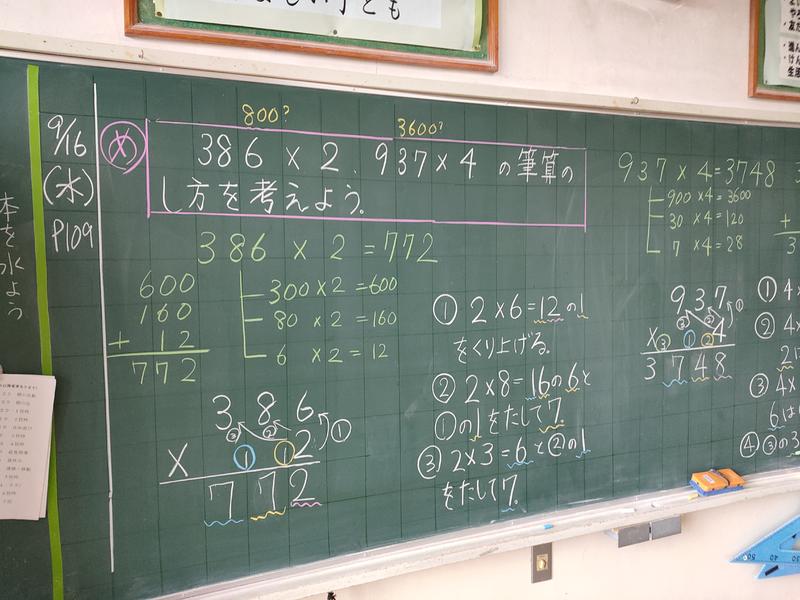 子ども
9/16
(水)
P109
め
800?
3600?
386 × 2、937×4 の筆算の
し方を考えよう。
386 × 2 = 772
300 × 2 = 600
80 × 2 = 160
6 × 2 = 12
600
160
+ 12
772
386
× 2
①
②
③
1
1
772
① 2×6=12の1
をくり上げる。
② 2×8=16の6と
①の1をたして7。
③ 2×3=6と②の1
をたして7。
937 × 4 = 3748
900 × 4 = 3600
30 × 4 = 120
7 × 4 = 28
+
3
937
×4
①
②
③
3748
① 4×
② 4×
③ 4×
6は
④ ③の3